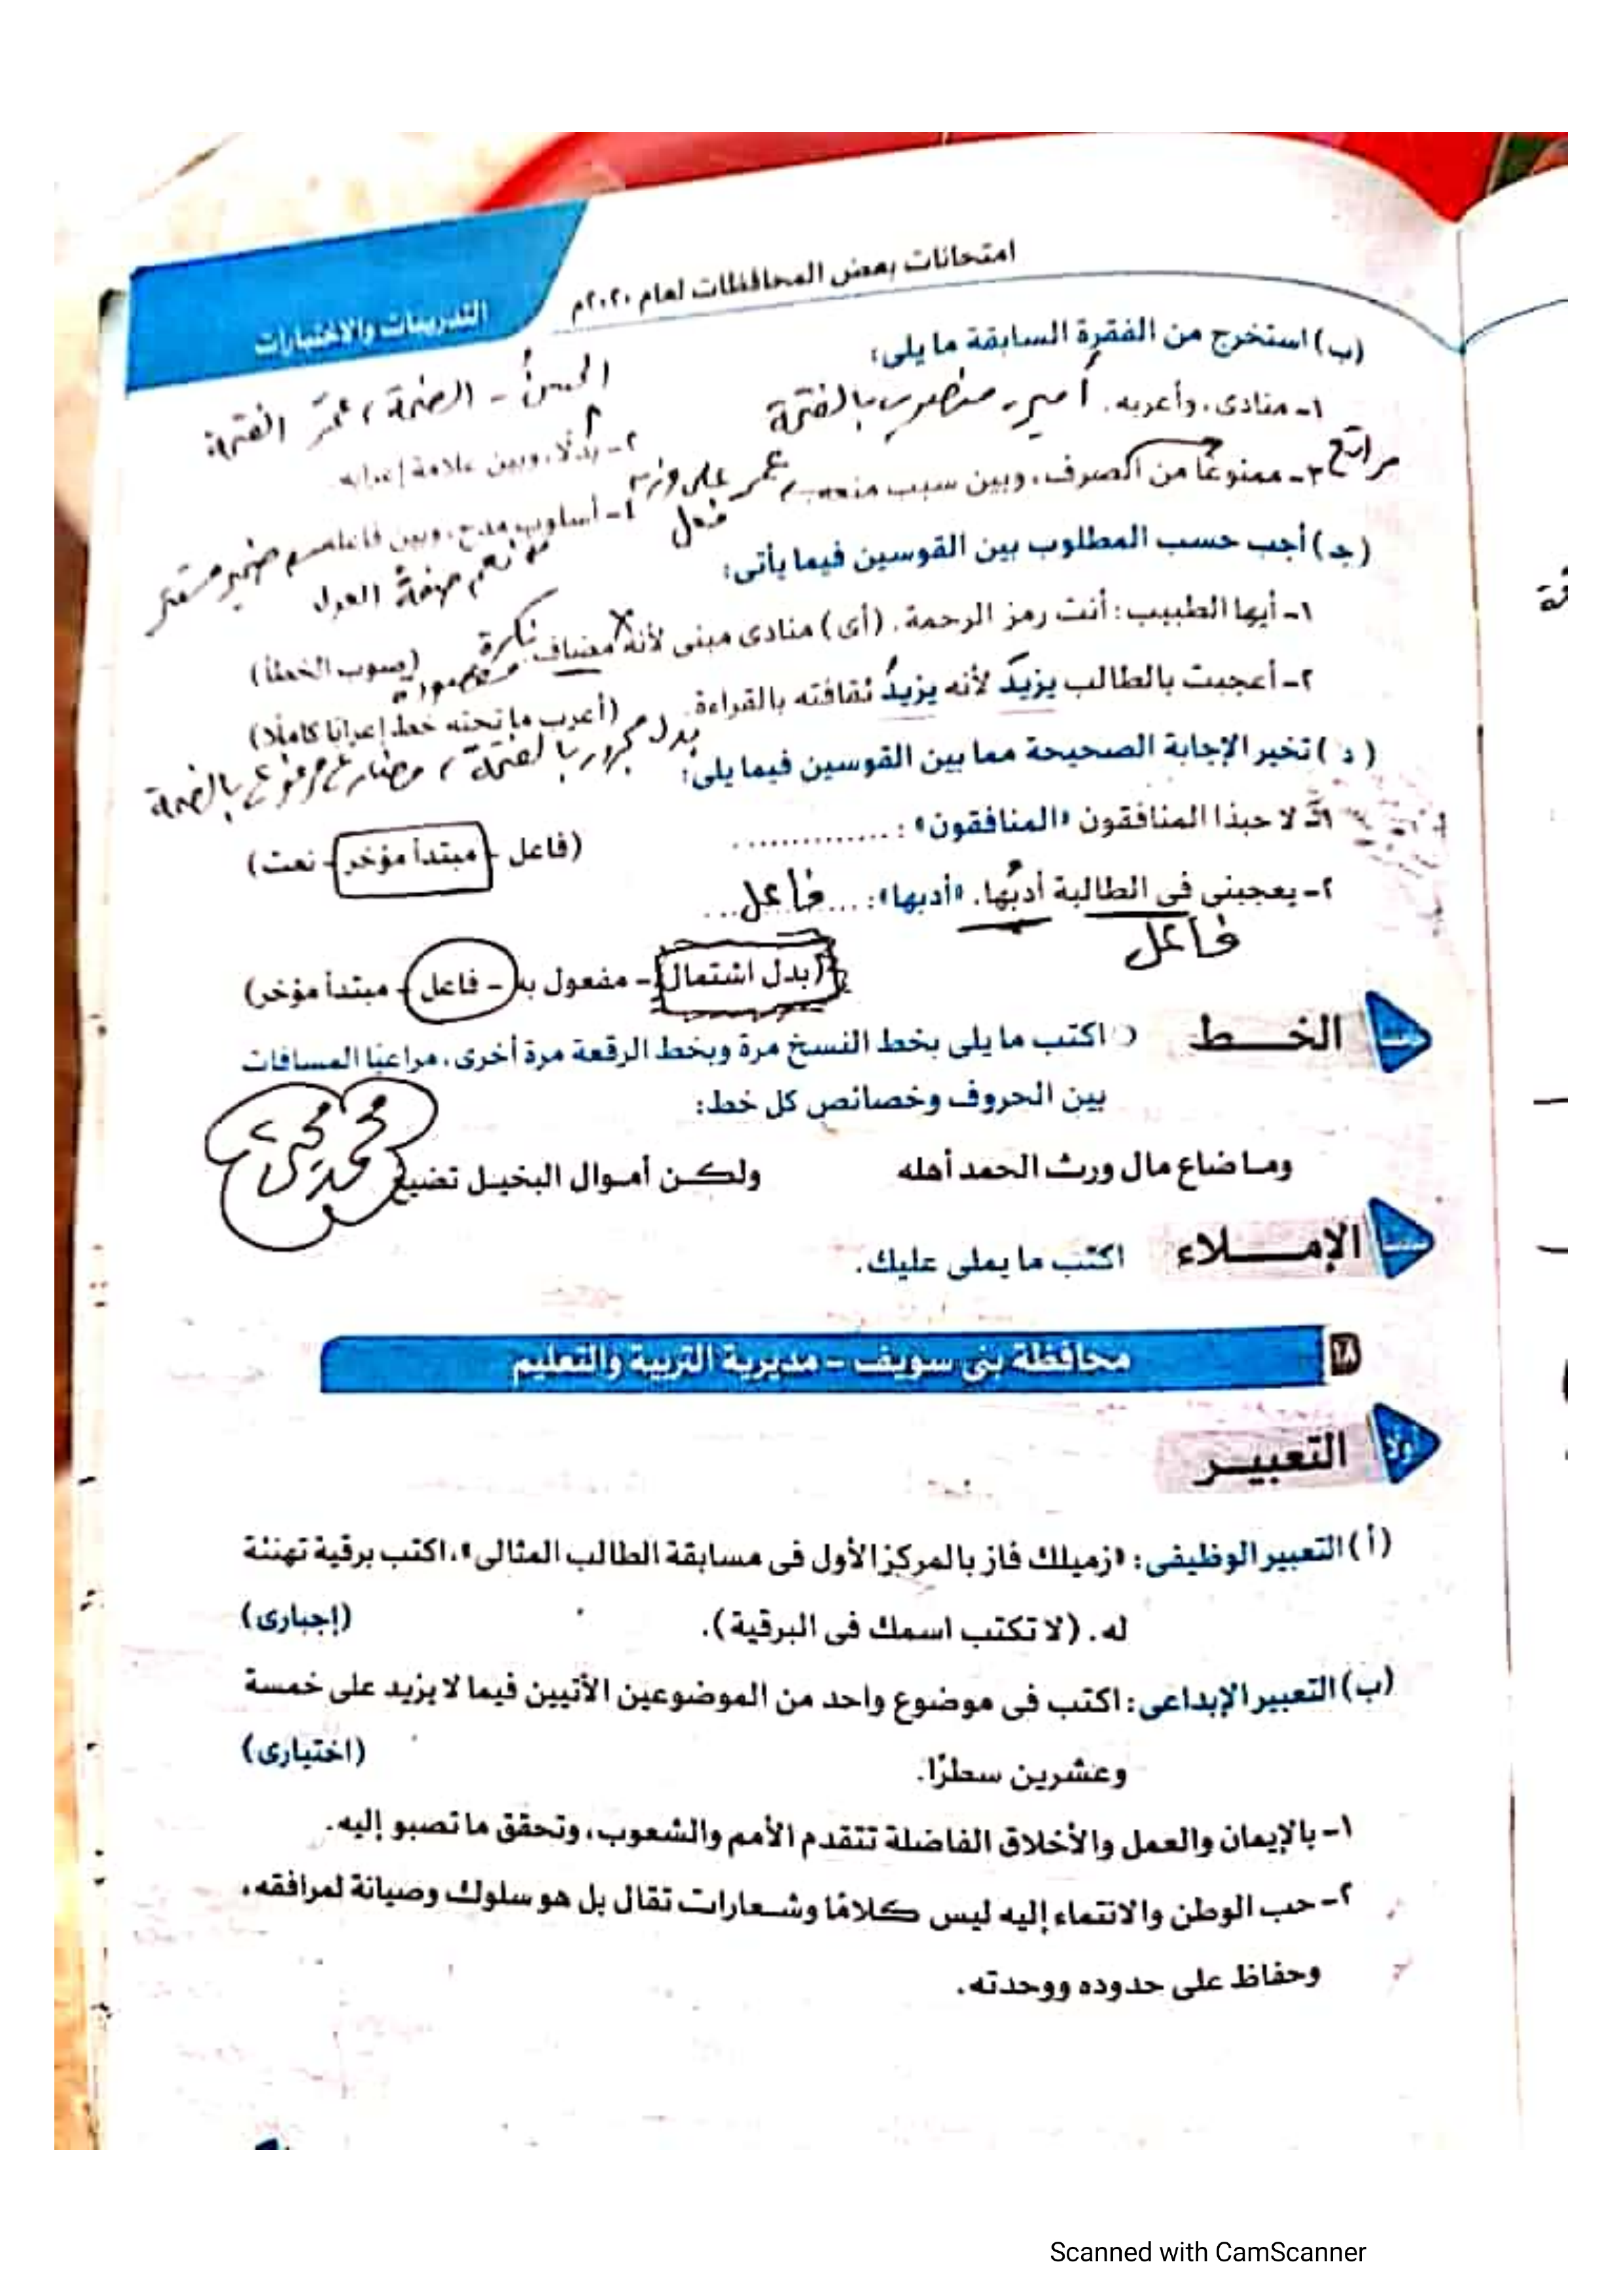 امتحانات بعض المحافظات لعام ٢٠٢٠م
التدريبات والاختبارات
(ب) استخرج من الفقرة السابقة ما يلى:
١- منادى، وأعربه. أمير، منصوب بالفتحة
٢- بدلًا، وبين علامة إعرابه.
الحسنُ - الضمة، عمرَ الفتحة
٣- ممنوعًا من الصرف، وبين سبب منعه. عمر على وزن
فعل
٤- أسلوب مدح، وبين فاعله ضمير مستتر
نعم صفةً العدل
(جـ) أجب حسب المطلوب بين القوسين فيما يأتى:
١- أيها الطبيب: أنت رمز الرحمة. (أى) منادى مبنى لأنه مضاف. (صوب الخطأ)
نكرة مقصودة
٢- أعجبت بالطالب يزيدَ لأنه يزيدُ ثقافته بالقراءة. (أعرب ما تحته خط إعرابًا كاملًا)
بدل مجرور بالفتحة، مضارع مرفوع بالضمة
(د) تخير الإجابة الصحيحة مما بين القوسين فيما يلى:
١- لا حبذا المنافقون «المنافقون»: ..............
(فاعل - مبتدأ مؤخر - نعت)
٢- يعجبنى فى الطالبة أدبُها. «أدبها»: ... فاعل ...
فاعل
(بدل اشتمال - مفعول به - فاعل - مبتدأ مؤخر)
الخـــط
اكتب ما يلى بخط النسخ مرة وبخط الرقعة مرة أخرى، مراعيًا المسافات
بين الحروف وخصائص كل خط:
وما ضاع مال ورث الحمد أهله ولكـن أمـوال البخيـل تضيع
محمد
الإمـــلاء
اكتب ما يملى عليك.
١٨ محافظة بنى سويف - مديرية التربية والتعليم
أولًا التعبيـر
(أ) التعبير الوظيفى: «زميلك فاز بالمركز الأول فى مسابقة الطالب المثالى»، اكتب برقية تهنئة
له. (لا تكتب اسمك فى البرقية). (إجبارى)
(ب) التعبير الإبداعى: اكتب فى موضوع واحد من الموضوعين الآتيين فيما لا يزيد على خمسة
وعشرين سطرًا. (اختيارى)
١- بالإيمان والعمل والأخلاق الفاضلة تتقدم الأمم والشعوب، وتحقق ما تصبو إليه.
٢- حب الوطن والانتماء إليه ليس كلامًا وشعارات تقال بل هو سلوك وصيانة لمرافقه،
وحفاظ على حدوده ووحدته.
Scanned with CamScanner